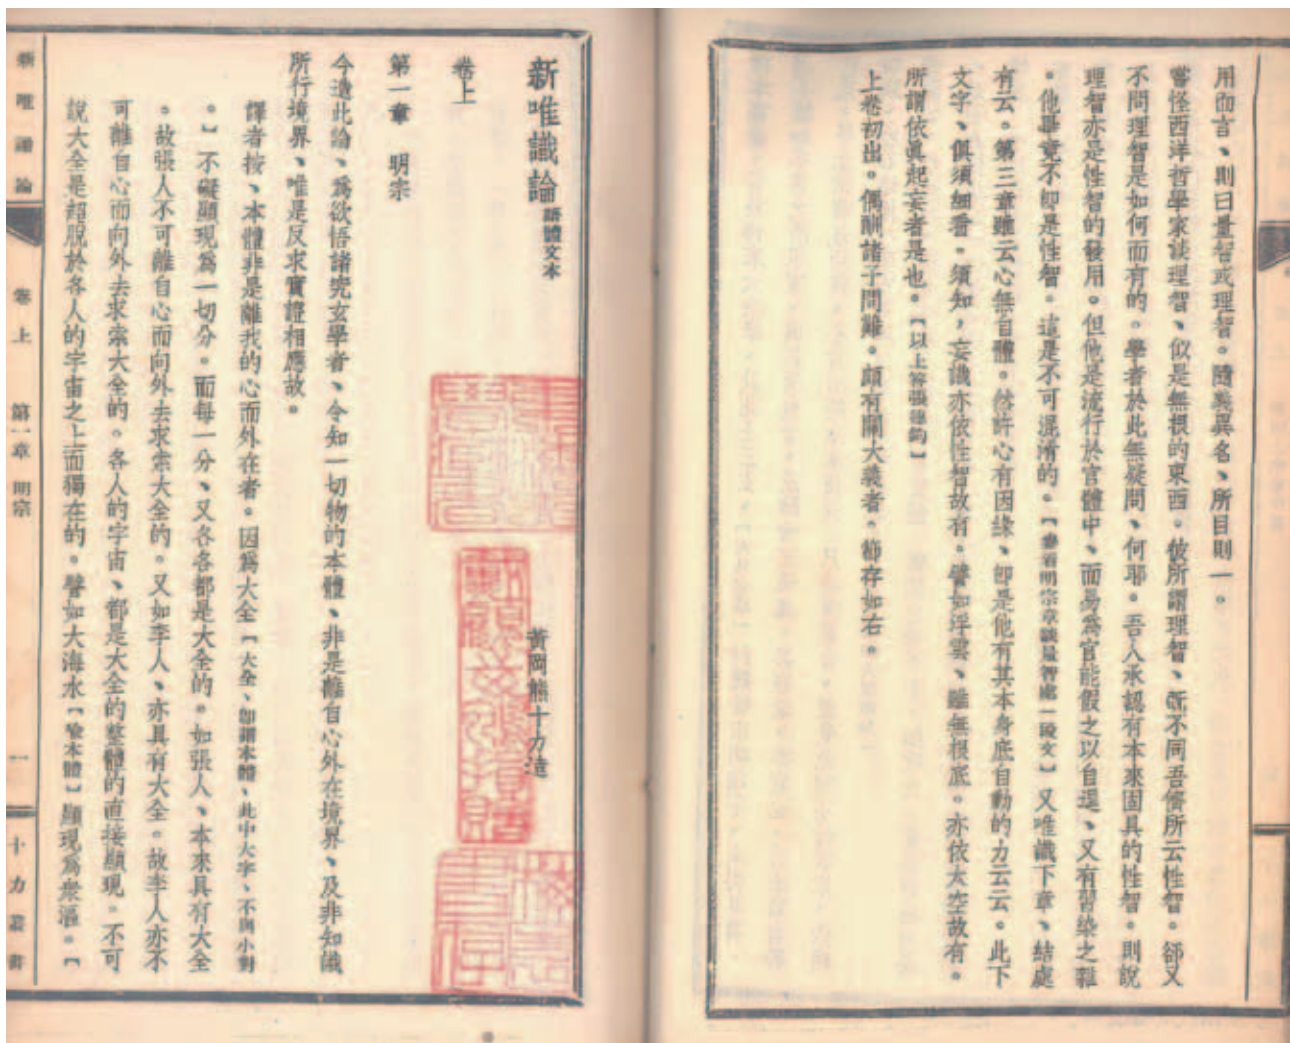 用而言、則曰量智或理智。隨義異名、所目則一。
嘗怪西洋哲學家談理智、似是無根的東西。彼所謂理智、旣不同吾儕所云性智。卻又
不問理智是如何而有的。學者於此無疑問、何耶。吾人承認有本來固具的性智。則說
理智亦是性智的發用。但他是流行於官體中、而易為官能假之以自逞、又有習染之雜
。他畢竟不即是性智。這是不可混淆的。【參看明宗章談量智處一段文】又唯識下章、結處
有云。第三章雖云心無自體。然許心有因緣、卽是他有其本身底自動的力云云。此下
文字、俱須細看。須知，妄識亦依性智故有。譬如浮雲、雖無根底。亦依太空故有。
所謂依眞起妄者是也。【以上答張德鈞】
上卷初出。偶酬諸子問難。頗有關大義者。節存如右。
新唯識論 語體文本
黃岡熊十力造
卷上
第一章 明宗
今造此論、為欲悟諸究玄學者、令知一切物的本體、非是離自心外在境界、及非知識
所行境界、唯是反求實證相應故。
譯者按、本體非是離我的心而外在者。因為大全【大全、卽謂本體、此中大字、不與小對
。】不礙顯現為一切分。而每一分、又各各都是大全的。如張人、本來具有大全
。故張人不可離自心而向外去求索大全的。又如李人、亦具有大全。故李人亦不
可離自心而向外去求索大全的。各人的宇宙、都是大全的整體的直接顯現。不可
說大全是超脫於各人的宇宙之上而獨在的。譬如大海水【喻本體】顯現為衆漚。【
新唯識論
卷上 第一章 明宗
一
十力叢書